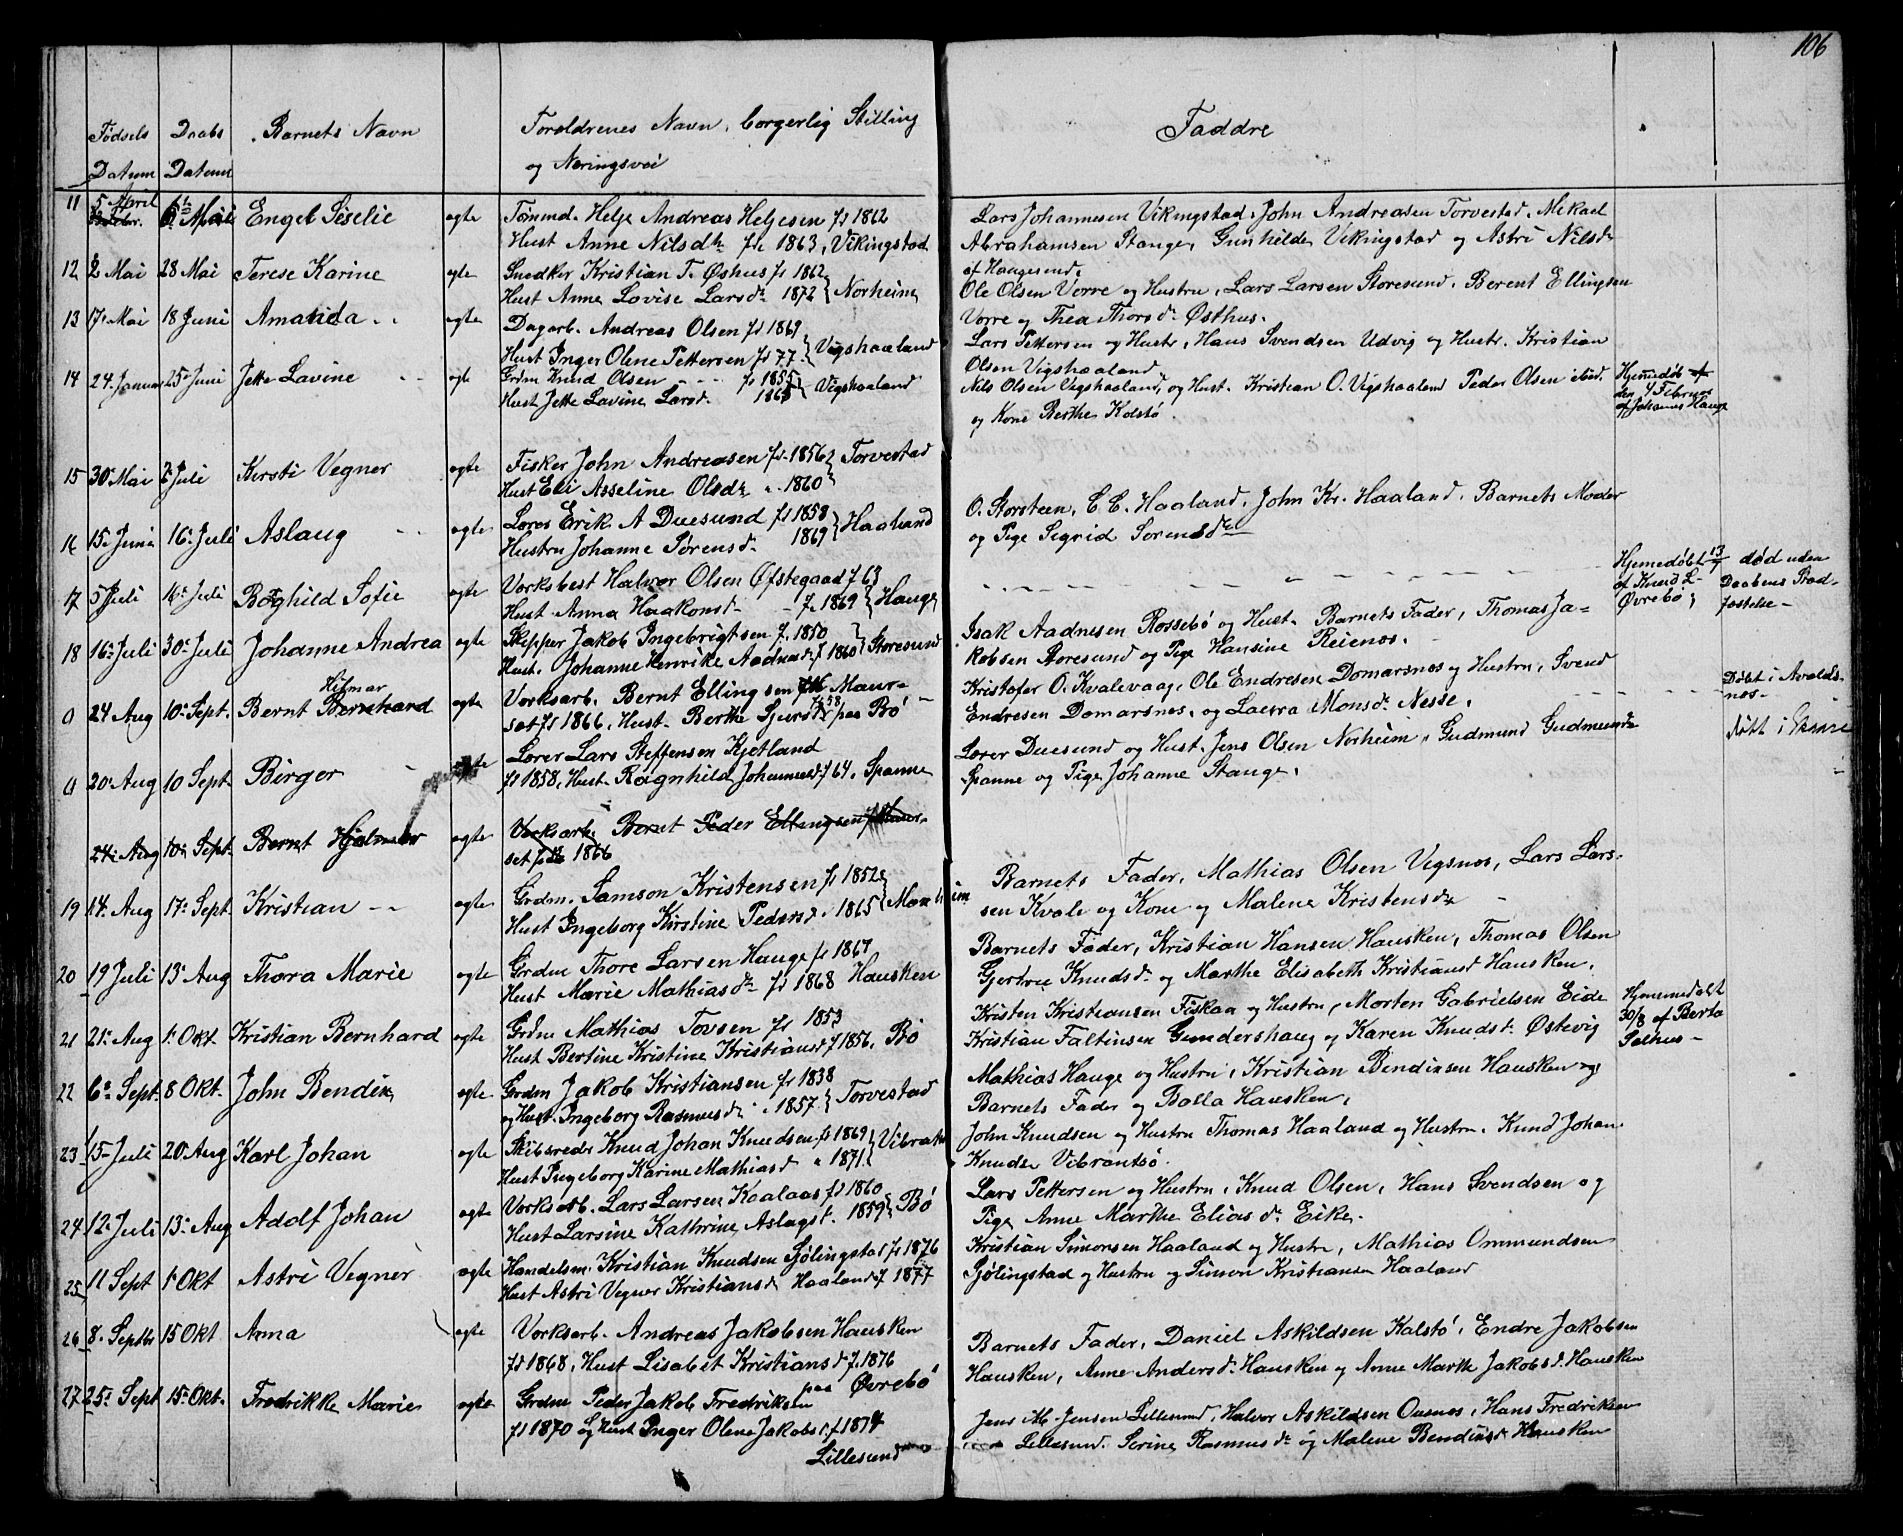 106
Fødsels Datum
Daabs Datum
Barnets Navn
Foreldrenes Navn, borgerlig Stilling
og Næringsvei
Faddre
11 5 April 6 Mai Engel Siselie ægte Tømmd. Helje Andreas Helgesen fd 1862
Hust Anne Nilsdtr fd 1863, Vikingstad
Lars Johannesen Vikingstad, John Andreasen Torvestad, Mikael
Abrahamsen Stange, Gunhilde Vikingstad og Astri Nilsdr
af Haugesund.
12 2 Mai 28 Mai Terese Karine ægte Snedker Kristian T. Øshus fd 1862
Hust Anne Lovise Larsdr 1872 } Norheim
Ole Olsen Vorre og Hustru, Lars Larsen Storesund, Berent Ellingsen
Vorre og Thea Thorsdr Østhus.
13 17 Mai 18 Juni Amanda ægte Dagarb. Andreas Olsen fd 1869
Hust Inger Olene Pettersen fd 77. } Vigshaaland
Lars Pettersen og Hustr, Hans Svendsen Udvig og Hustr. Kristian
Olsen Vigshaaland
14 24 Januar 25 Juni Jette Lavine ægte Grdm Knud Olsen fd 1855
Hust Jette Lavine Larsd. 1863 } Vigshaaland
Nils Olsen Vigshaaland, og Hust. Kristian O. Vigshaaland Peder Olsen ibid.
og Kone Berthe Kolstø.
Hjemedøb
den 4 Februar
af Johannes Hauge
15 30 Mai 2 Juli Kersti Vegner ægte Fisker John Andreasen fd. 1856 } Torvestad
Hust Eli Asseline Olsdr " 1860
16 15 Juni 16 Juli Aslaug ægte Lærer Erik A Duesund fd 1858
Hustru Johanne Sørensd. 1869 } Haaland
O. Storsteen, C. C. Haaland, John Kr. Haaland, Barnets Moder
og Pige Sigrid Sorensdtr
17 5 Juli 16 Juli Boghild Sofie ægte Værksbest Halvor Olsen Øfstegaad f 63
Hust Anna Haakonsd f. 1869 } Hauge
Hjemedøbt 13/7
af Knud L.
Øvrebø;
død uden
Daabens Stad-
fæstelse
18 16 Juli 30 Juli Johanne Andrea ægte Skipper Jakob Ingebrigtsen f. 1850
Hust. Johanne Henrike Aadnesd f 1860 } Storesund
Isak Aadnesen Rossebø og Hust. Barnets Fader, Thomas Ja-
kobsen Storesund og Pige Hansine Reienes.
0 24 Aug 10 Sept. Bernt Hilmar Bernhard ægte Værksarb. Bernt Ellingsen Maur-
set fd 1866, Hust. Berthe Sjursdtr fd 58 paa Bø
Kristofer O. Kvalevaag, Ole Endresen Domarsnes og Hustru, Svend
Endresen Domarsnes, og Laura Monsdr Nesse.
Døbt i Avalds-
nes
0 20 Aug 10 Sept. Birger ægte Lærer Lars Steffensen Kjetland
fd 1858, Hust. Ragnhild Johannesd f 64. Spanne
Lærer Duesund og Hust. Jens Olsen Norheim, Gudmund Gudmunds
Spanne og Pige Johanne Stange.
24 Aug 10 Sept. Bernt Hjalmar ægte Værksarb. Bernt Peder Ellingsen Maur-
set fd 1866
19 14 Aug 17 Sept. Kristian ægte Grdm. Samson Kristensen fd 1852
Hust Ingeborg Kirstine Pedersd. 1865
Barnets Fader, Mathias Olsen Vegsnes, Lars Lars-
sen Kvale og Kone og Malene Kristensdtr
20 19 Juli 13 Aug Thora Marie ægte Grdm Thore Larsen Hauge fd 1867
Hust Marie Mathiasdtr fd 1868 Hausken
Barnets Fader, Kristian Hansen Hausken, Thomas Olsen
Gjertrue Knudsdr og Marthe Elisabeth Kristiansd Hausken.
21 21 Aug 1 Okt. Kristian Bernhard ægte Grdm Mathias Tovsen fd 1853
Hust Bertine Kristine Kristiansd f 1856. Bø
Kristen Kristiansen Fiskaa og Hustru, Morten Gabrielsen Eide
Kristian Faltinsen Gundershaug og Karen Knudsdr Østevig
Hjemmedøbt
30/8 af Berta
Solhus
22 6 Sept. 8 Okt. John Bendix ægte Grdm Jakob Kristiansen fd 1838
og Hust. Ingeborg Rasmusdr " 1857 } Torvestad
Mathias Hauge og Hustru, Kristian Bendixsen Hausken og
Barnets Fader og Bolla Hausken.
23 15 Juli 20 Aug Karl Johan ægte Skibsreder Knud Johan Knudsen fd 1869
Hust Ingeborg Karine Mathiasd " 1871
John Knudsen og Hustru Thomas Haaland og Hustru, Knud Johan
Knudse Vibrantsø.
24 12 Juli 13 Aug Adolf Johan ægte Værksarb. Lars Larsen Kaalaas fd 1860
Hust Larsine Kathrine Aslagst. 1859 } Bø
Lars Pettersen og Hustru, Knud Olsen, Hans Svendsen og
Pige Anne Marthe Eliasdr Eike.
25 11 Sept 1 Okt Astri Vegner ægte Handelsm. Kristian Knudsen Sjølingstad fd 1876
Hust Astri Vegner Kristiansd Haaland f 1877
Kristian Simonsen Haaland og Hustr, Mathias Ommundsen
Sjølingstad og Hustru og Simon Kristiansen Haaland
26 8. Septbr 15 Okt Anna ægte Værksarb. Andreas Jakobsen Hausken
fd 1868, Hust Lisabet Kristiansd f. 1876
paa Øvrebø
Barnets Fader, Daniel Askildsen Kalstø, Endre Jakobsen
Hausken, Anne Andersdr Hausken og Anne Marthe Jakobsd. Hausken
27 25 Sept 15 Okt. Fredrikke Marie ægte Grdm Peder Jakob Fredriksen
fd 1870 og Hust Inger Olene Jakobsd. f 1874
Lillesund
Jens M. Jensen Lillesund, Halvor Askildsen Ousnes, Hans Fredriksen
Lillesund. Serine Rasmusdr og Malene Bendixsd Hausken